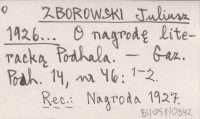 ZBOROWSKI Juliusz
1926... O nagrodę lite-
racką Podhala. — Gaz.
Podh. 14, nr 46: 1-2.
Rec.: Nagroda 1927.
BI/051/0342